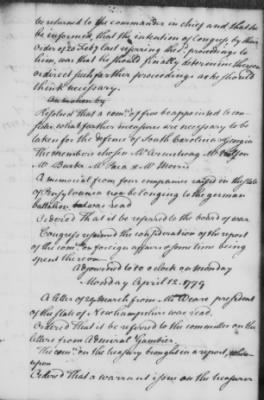 be returned to the commander in chief and that he
be informed, that the intention of Congress by their
Order of 20 Feby last referring the sd. proceedings to
him, was that he should finally determine thereon
or direct such farther proceedings as he should
think necessary.
On motion by
Resolved that a comee. of five be appointed to con-
sider what farther measures are necessary to be
taken for the defence of South Carolina & Georgia
The members chosen Mr Armstrong
Mr Burke Mr Paca & Mr Morris
A memorial from four companies raised in the state
of Pensylvania now belonging to the german
battalion was read
Ordered That it be referred to the board of war.
Congress resumed the consideration of the report
of the comee. on foreign affairs & some time being
spent thereon
Adjourned to 10 oClock on Monday
Monday April 12. 1779
A letter of 24 March from Mr Weare president
of the state of Newhampshire was read.
Ordered That it be referred to the committee on the
letters from Admiral Gambier
The comee. on the treasury brought in a report, where-
upon
Ordered That a warrant issue on the treasurer